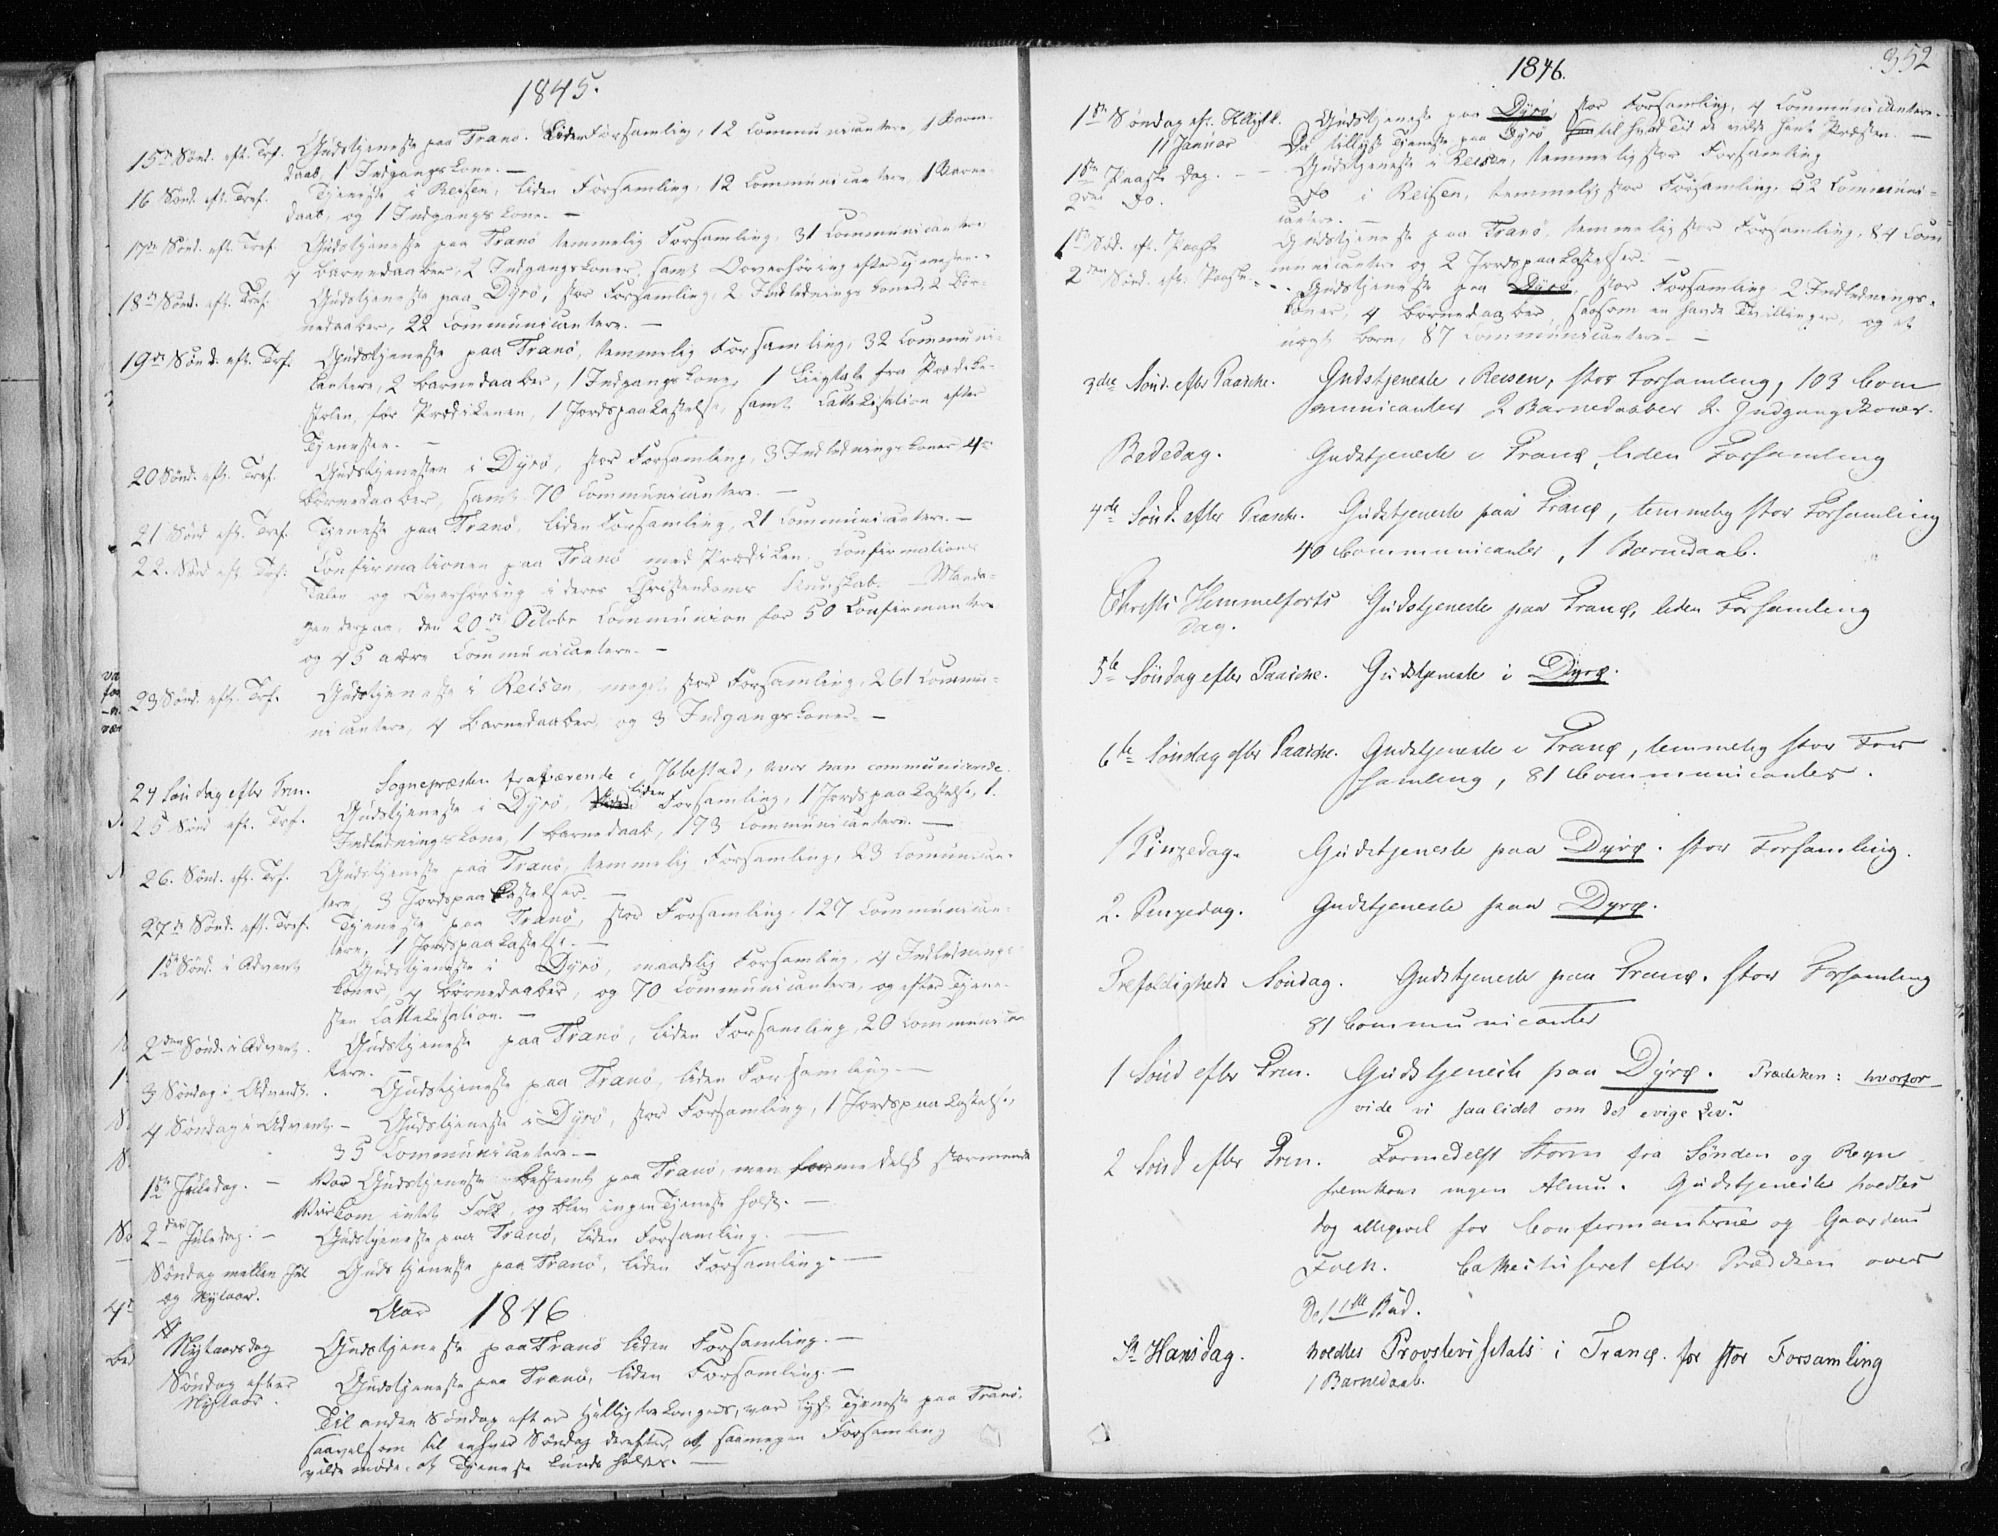 1845.
15de Sønd. eft. Tref. Gudstjeneste paa Tranø. Liden Forsamling, 12 Communicantere, 1 Barne-
daab, 1 Indgangskone. —
16 Sønd. eft. Tref. Tjeneste i Reisen, liden Forsamling, 12 Communicantere, 1 Barne-
daab, og 1 Indgangskone. —
17de Sønd. eft. Tref. Gudstjeneste paa Tranø temmelig Forsamling, 31 Communicantere
4 Barnedaaber, 2 Indgangskoner, samt Overhøring efter Tjenesten. -
18de Sønd. eft. Tref. Gudstjeneste paa Dyrø, stor Forsamling, 2 Indlednings Koner, 2 Bør-
nedaaber, 22 Communicantere. —
19de Sønd. eft. Tref. Gudstjeneste paa Tranø, temmelig Forsamling, 32 Communi-
cantere, 2 Barnedaaber, 1 Indgangskone, 1 Liigtale fra Prædike-
stolen, før Prædikenen, 1 Jordspaakastelse, samt Cattekisation efter
Tjenesten. —
20 Sønd. eft. Tref. Gudstjenesten i Dyrø, stor Forsamling, 3 Indledningskoner, 4re
Børnedaaber, samt 70 Communicantere. —
21 Sønd eft. Tref. Tjeneste paa Tranø, liden Forsamling, 21 Communicantere. —
22. Sønd eft. Tref. Confirmationen paa Tranø med Prædiken, Confirmations
Talen og Overhøring i deres Christendoms Kundskab. — Manda-
gen derpaa, den 20de Octobr Communion for 50 Confirmantere
og 45 andre Communicantere. —
23 Sønd. eft. Tref. Gudstjeneste i Reisen meget stor Forsamling, 261 Commu-
nicantere, 4 Barnedaaber, og 3 Indgangskoner. —
24 Søndag efter Tren. Sognepræsten fraværende i Ibbestad, hvor han communicerede.
25 Sønd eft. Tref. Gudstjeneste i Dyrø, liden Forsamling, 1 Jordspaakastelse, 1.
Indledningskone, 1 Barnedaab, 173 Communicantere. —
26. Sønd. eft. Tref. Gudstjeneste paa Tranø, temmelig Forsamling, 23 Comunican-
tere, 3 Jordspaakastelser. —
27de Sønd. eft. Tref. Tjeneste paa Tranø, stor Forsamling, 127 Communican-
tere, 1 Jordspaakastelse. —
1ste Sønd. i Advent Gudstjeneste i Dyrø, maadelig Forsamling, 4 Indlednings-
koner, 4 Børnedaaber, og 70 Communicantere, og efter Tjene-
sten Cattekisation. —
2den Sønd. i Advent. Gudstjeneste paa Tranø, liden Forsamling, 20 Communican
tere. —
3 Søndag i Advent. Gudstjeneste paa Tranø, liden Forsamling. —
4 Søndag i Advent — Gudstjeneste i Dyrø, stor Forsamling, 1 Jordspaakastelse,
35 Communicantere. —
1ste Juledag. — Var Gudstjeneste bestemt paa Tranø, men formedelst stormende
Veir kom intet Folk, og blev ingen Tjeneste holdt. —
2den Juledag. — Gudstjeneste paa Tranø, liden Forsamling. —
Søndag mellem Jul Gudstjeneste paa Tranø, liden Forsamling. —
og Nytaar.
Aar 1846
Nytaarsdag Gudstjeneste paa Tranø liden Forsamling. —
Søndag efter Gudstjeneste paa Tranø, liden Forsamling. —
Nytaar.
Til anden Søndag efter Hellig tre Konger, var lyst Tjeneste paa Tranø,
saavelsom til enhver Søndag derefter, at saamegen Forsamling
vilde møde, at Tjeneste kunde holdes. —
352
1846.
1ste Søndag eft. Helligt. Gudstjeneste paa Dyrø, stor Forsamling, 4 Communicantere.
11 Januar Da tillyst Tjeneste paa Dyrø til hvad Tid de vilde hente Præsten. —
1ste Paaske Dag. — — Gudstjeneste i Reisen, temmelig stor Forsamling
2den Do. Do i Reisen, temmelig stor Forsamling, 52 Communi-
cantere. —
1ste Sønd. eft. Paaske Gudstjeneste paa Tranø, temmelig stor Forsamling, 84 Com
municantere og 2 Jordspaakastelser. —
2den Sønd. eft. Paaske - - - Gudstjeneste paa Dyrø, stor Forsamling 2 Indlednings-
koner, 4 Børnedaaber, saasom en Tvillinger, og et
uægte Barn, 87 Communicantere. —
3die Sønd. efter Paaske. Gudstjeneste i Reisen, stor Forsamling, 103 Com
municanter 2 Barnedaaber 2. Indgangskoner.
Bededag. Gudstjeneste i Tranø, liden Forsamling
4de Sønd. efter Paaske. Gudstjeneste paa Tranø, temmelig stor Forsamling
40 Communicanter, 1 Barnedaab.
Christi Hemmelfarts Gudstjeneste paa Tranø, liden Forsamling
Dag.
5te Søndag efter Paaske. Gudstjeneste i Dyrø.
6te Søndag efter Paaske. Gudstjeneste i Tranø, temmelig stor For
samling, 81 Communicanter.
1 Pinzedag. Gudstjeneste paa Dyrø. stor Forsamling.
2. Pinzedag. Gudstjeneste paa Dyrø.
Trefoldigheds Søndag. Gudstjeneste paa Tranø. stor Forsamling
81 Communicanter
1 Sønd efter Tren. Gudstjeneste paa Dyrø. Prædiken: hvorfor
vide vi saalidet om det evige Liv?
2 Sønd efter Tren. Formedelst Storm fra Sønden og Regn
fremkom ingen Almu. Gudstjeneste holdtes
dog alligevel for Confirmanterne og Gaardens
Folk. Cathechiseret efter Prædiken over
Det 1ste Bud.
St Hansdag. holdtes Provstevisitats i Tranø. for stor Forsamling
1 Barnedaab.